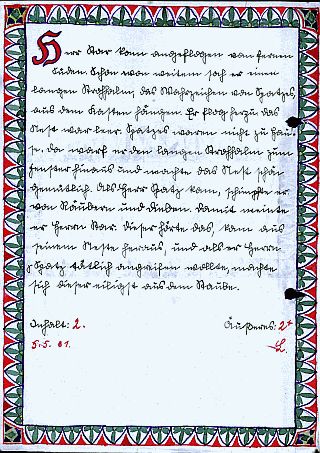 Herr Star kam angeflogen vom fernen
Süden. Schon von weitem sah er einen
langen Strohhalm, das Wahrzeichen von Spatzes,
aus dem Kasten hängen. Er flog herzu das
Nest war leer. Spatzes waren nicht zu Hau-
se. da warf er den langen Strohhalm zum
Fenster hinaus und machte das Nest schön
gemütlich. Als Herr Spatz kam, schimpfte er
von Räubern und Dieben. Damit meinte
er Herrn Star. Dieser hörte das, kam aus
seinem Neste heraus, und als er Herrn
Spatz tätlich angreifen wollte, machte
sich dieser eiligst aus dem Staube.
Inhalt: 2. Äußeres: 2+
5.5.61. L.